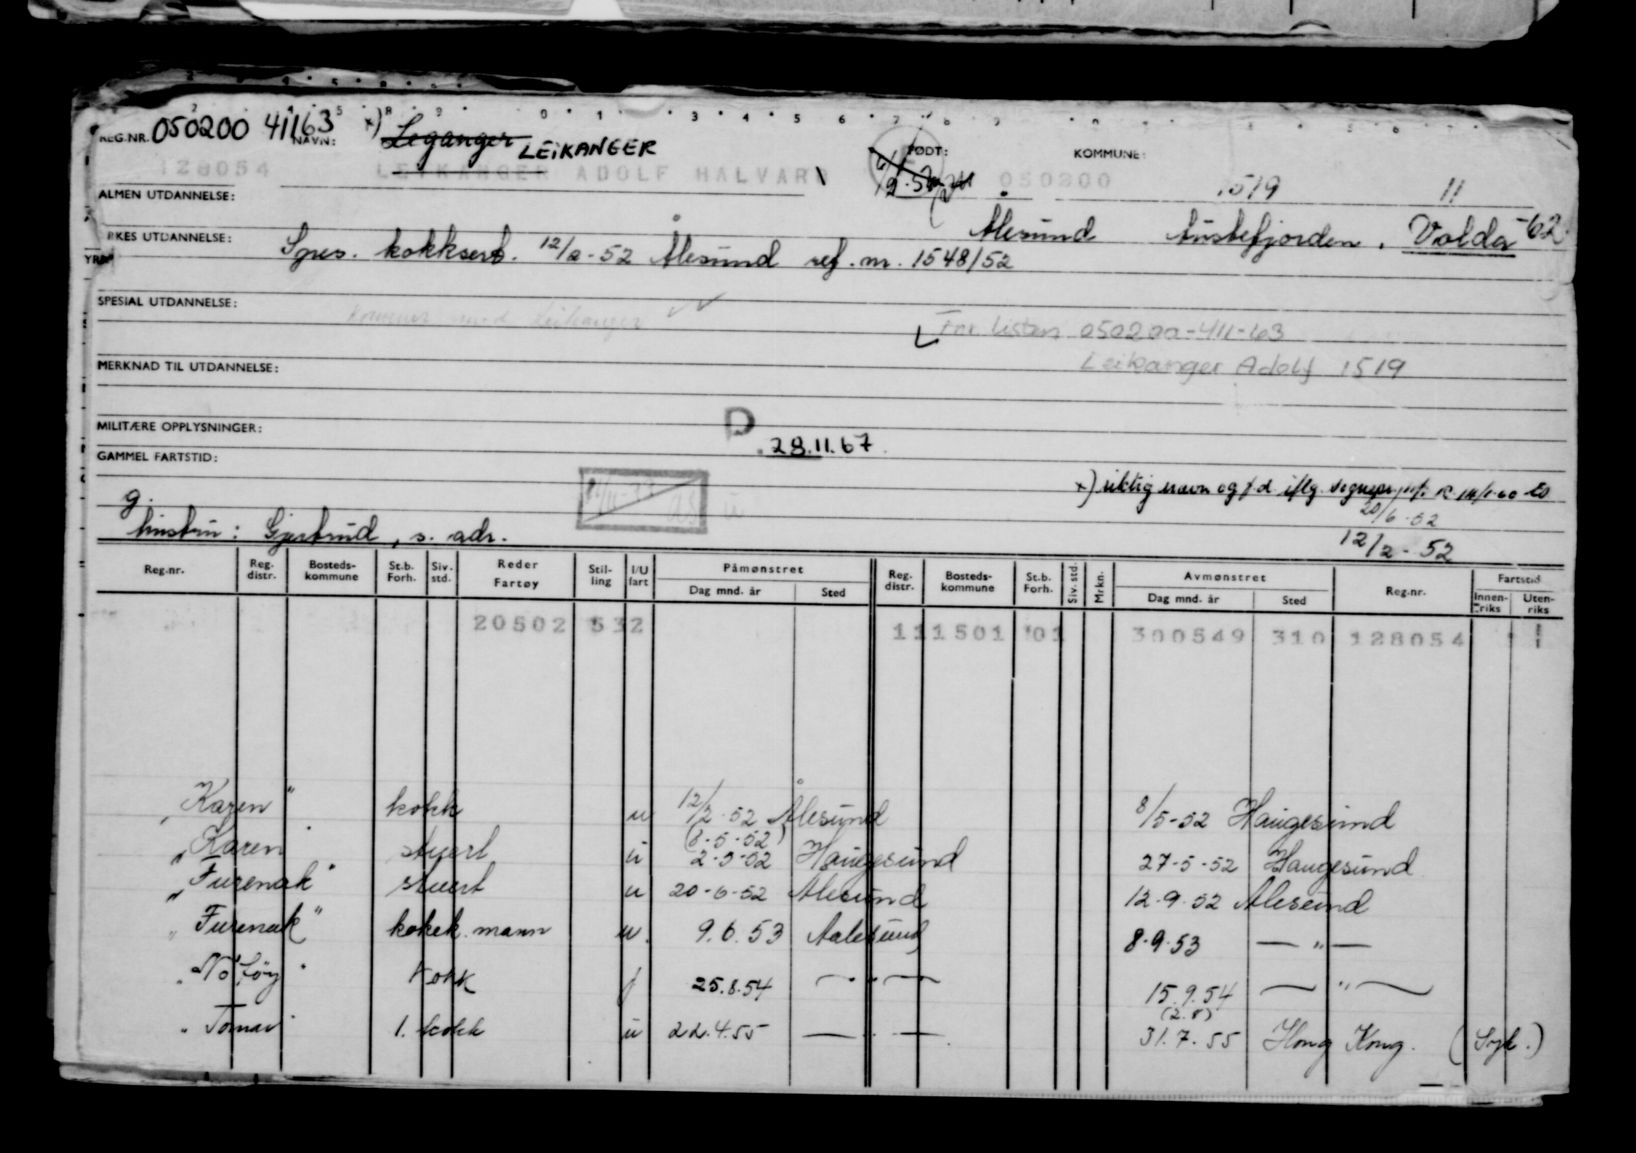 REG.NR. 050200 41163 NAVN: x) Leganger LEIKANGER FØDT: KOMMUNE:
128054 LEIKANGER ADOLF HALVAR 050200 1519 11
ALMEN UTDANNELSE:
Ålesund Austefjorden, Volda -62
RKES UTDANNELSE: Spes. kokksert. 12/2-52 Ålesund ref. nr. 1548/52
SPESIAL UTDANNELSE:
Kommer med Leikanger
For listen 050200-411-63
Leikanger Adolf 1519
MERKNAD TIL UTDANNELSE:
MILITÆRE OPPLYSNINGER: D
28.11.67
GAMMEL FARTSTID:
x) riktig navn og f.d. iflg.
g. 20/6-52
hustru: Gjertrud, s. adr. 12/2-52
Reg.nr. Reg. distr. Bosteds-kommune St.b. Forh. Siv. std. Reder Fartøy Stil-ling I/U fart Påmønstret Dag mnd. år Sted Reg. distr. Bosteds-kommune St.b. Forh. Siv. std. Mrkn. Avmønstret Dag mnd. år Sted Reg.nr. Fartstid Innen-riks Uten-riks
20502 532 111501 01 300549 310 128054 1
"Karen" kokk u 12/2-52 Ålesund 8/5-52 Haugesund
(8-5-52)
"Karen" stuert u 2-5-52 Haugesund 27-5-52 Haugesund
"Furenak" stuert u 20-6-52 Ålesund 12-9-52 Ålesund
"Furenak" kokek. mann u. 9.6.53 Aalesund 8-9-53 — " —
kokk f 25.8.54 — " — 15.9.54 — " —
(2.8)
1. kokk u 22.4.55 — " — 31.7.55 Hong Kong. (Syk.)